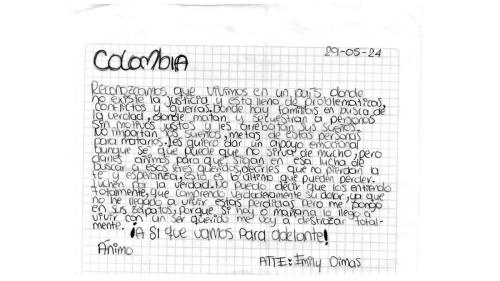 COLOMBIA
29-05-24
Reconozcamos que vivimos en un país donde
no existe la justicia y esta lleno de problematicas,
conflictos y guerras. Donde hay familias en busca de
la verdad, donde matan y secuestran a personas
sin motivos justos y les arrebatan sus sueños.
No importan los sueños, metas de estas personas
para matarlos. Les quiero dar un apoyo emocional
aunque se que puede que no sirva de mucho, pero
darles animos para que sigan en esa lucha de
buscar y esos seres queridos. Decirles que no pierdan la
fe y esperanza, esta es lo último que pueden perder.
Luchen por la verdad. No puedo decir que los entiendo
totalmente, que comprendo verdaderamente su dolor, ya que
no he llegado a vivir estas perdidas pero me pongo
en sus zapatos, porque si hoy o mañana lo llego a
vivir con un ser querido me voy a destrozar total-
mente.
¡A SI que vamos para adelante!
Ánimo
ATTE: Emily Dimas